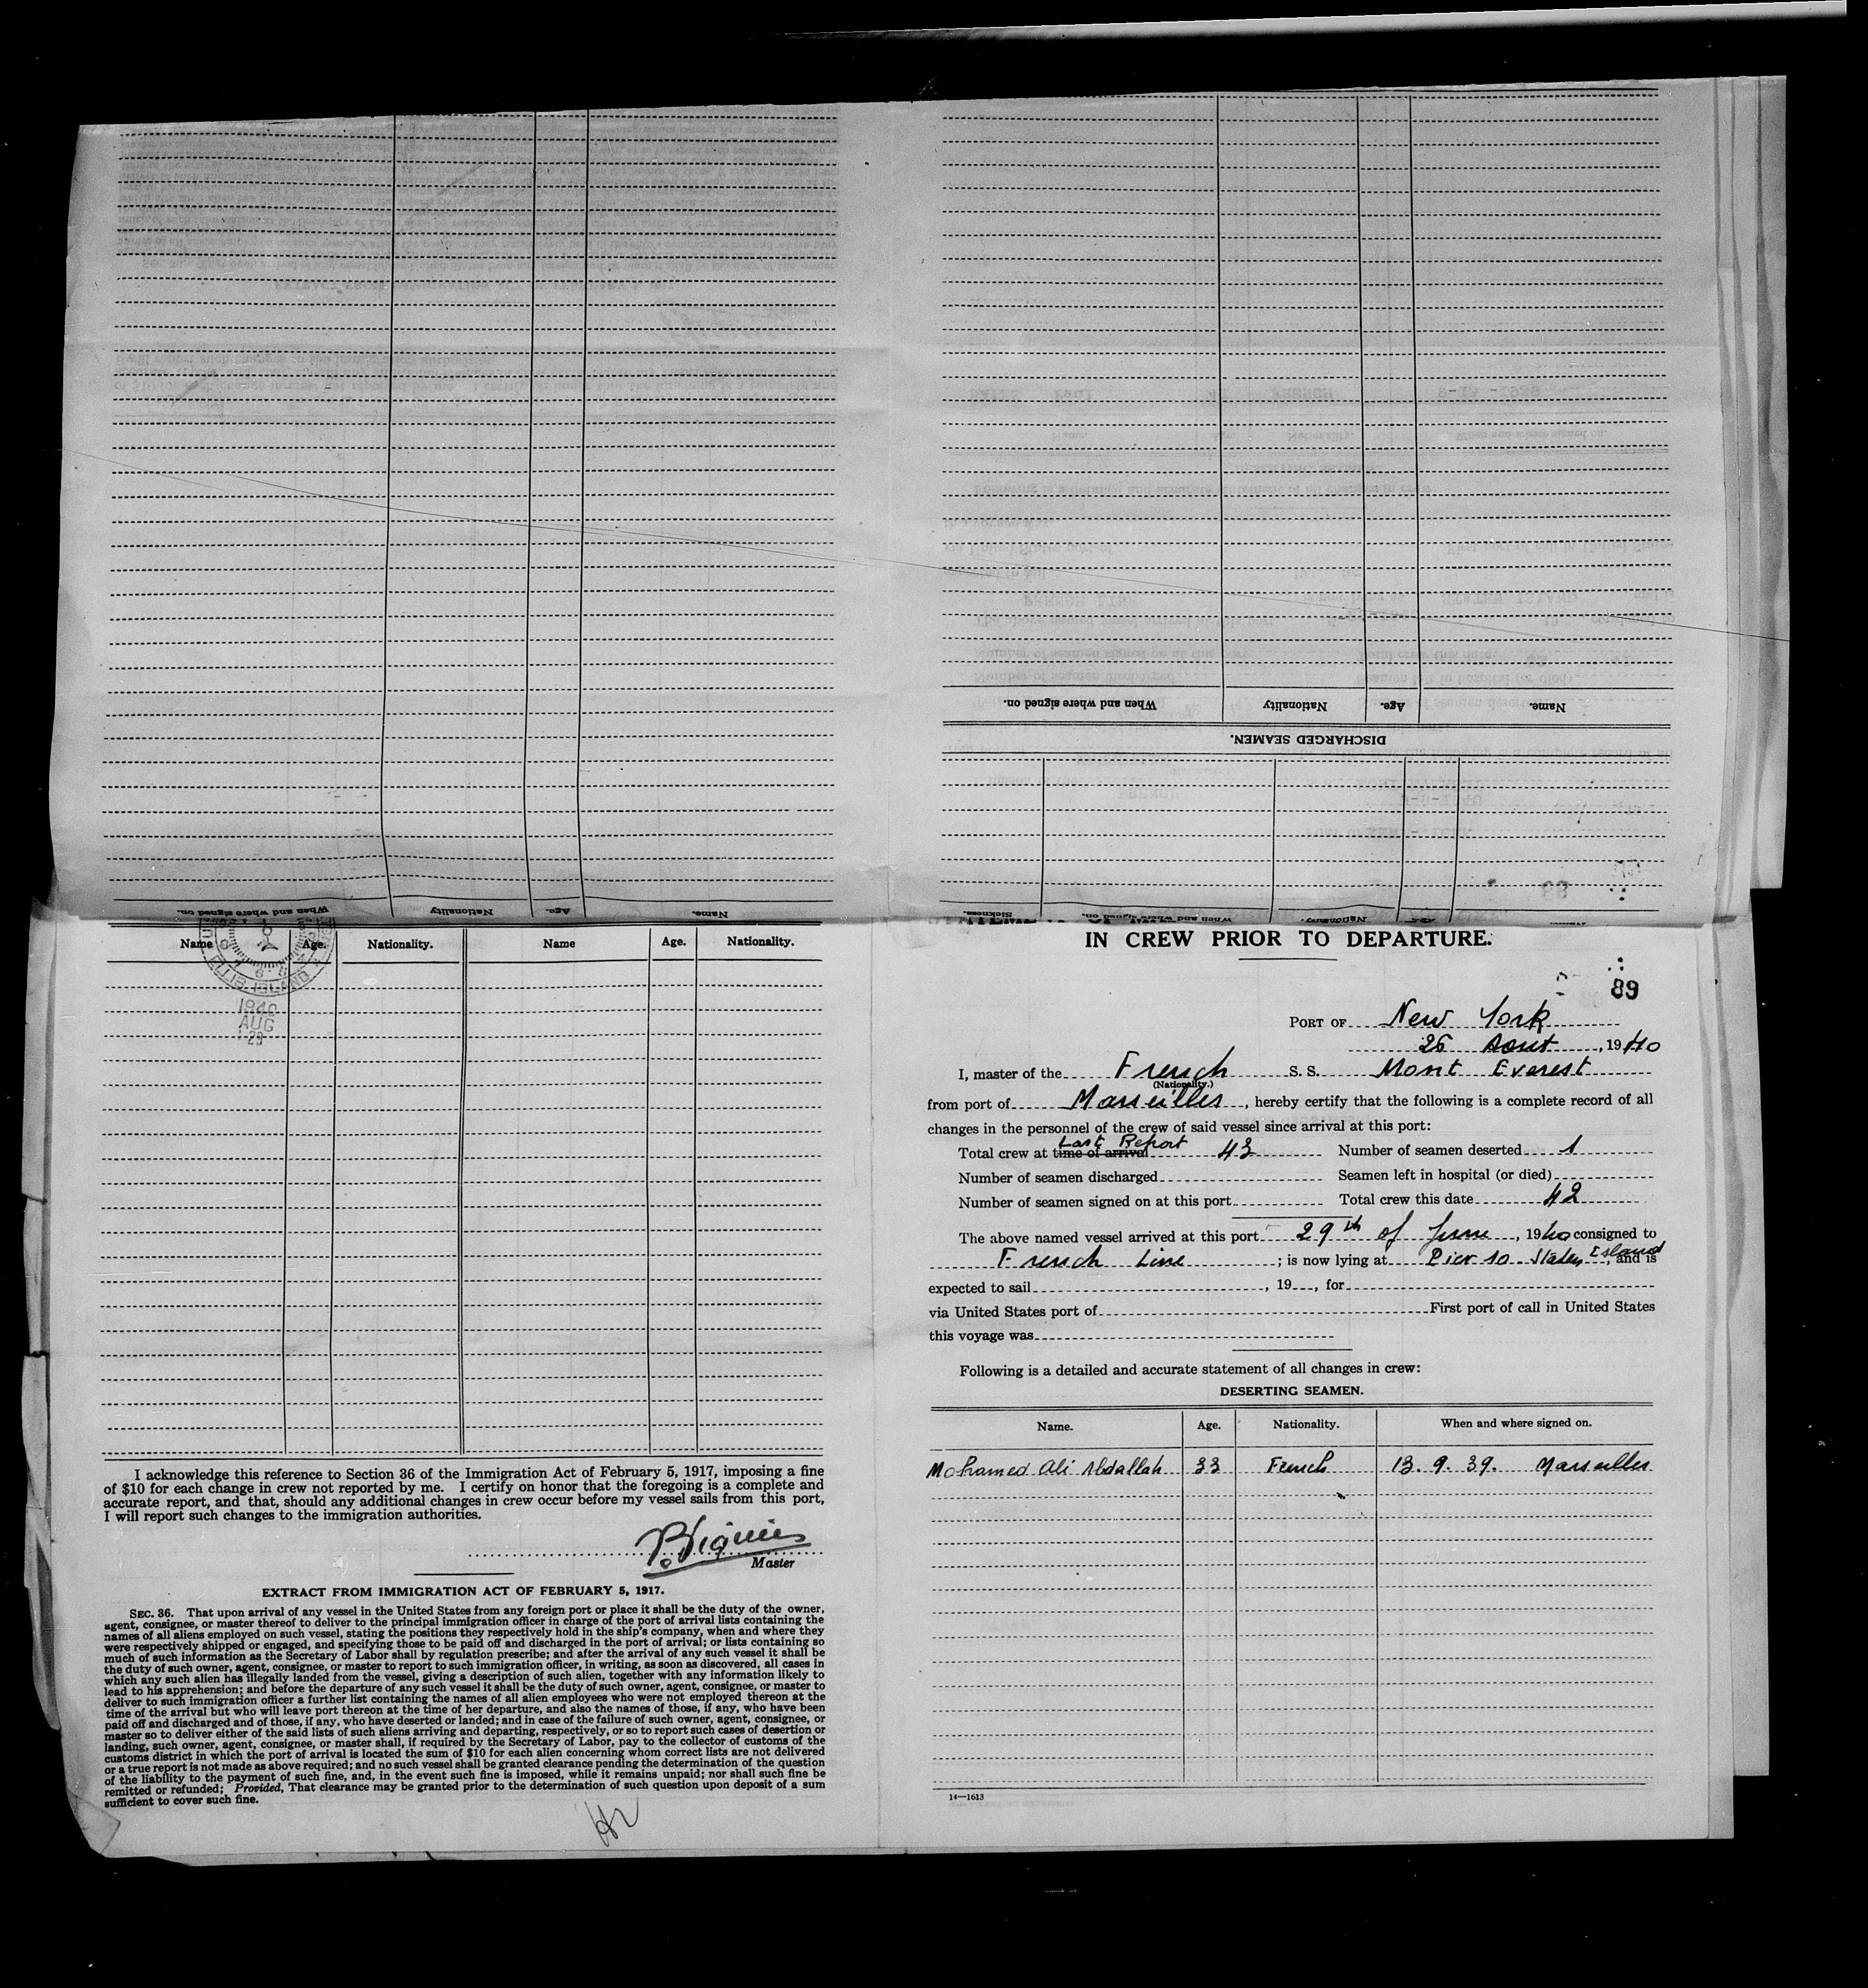 Name. Age. Nationality When and where signed on.
DISCHARGED SEAMEN.
Name. Age. Nationality When and where signed on.
Name. Nationality. When and where signed on. Sickness.
Name Age. Nationality. Name Age. Nationality.
ELLIS ISLAND
1940
AUG
29
I acknowledge this reference to Section 36 of the Immigration Act of February 5, 1917, imposing a fine
of $10 for each change in crew not reported by me. I certify on honor that the foregoing is a complete and
accurate report, and that, should any additional changes in crew occur before my vessel sails from this port,
I will report such changes to the immigration authorities.
Master
EXTRACT FROM IMMIGRATION ACT OF FEBRUARY 5, 1917.
SEC. 36. That upon arrival of any vessel in the United States from any foreign port or place it shall be the duty of the owner,
agent, consignee, or master thereof to deliver to the principal immigration officer in charge of the port of arrival lists containing the
names of all aliens employed on such vessel, stating the positions they respectively hold in the ship's company, when and where they
were respectively shipped or engaged, and specifying those to be paid off and discharged in the port of arrival; or lists containing so
much of such information as the Secretary of Labor shall by regulation prescribe; and after the arrival of any such vessel it shall be
the duty of such owner, agent, consignee, or master to report to such immigration officer, in writing, as soon as discovered, all cases in
which any such alien has illegally landed from the vessel, giving a description of such alien, together with any information likely to
lead to his apprehension; and before the departure of any such vessel it shall be the duty of such owner, agent, consignee, or master to
deliver to such immigration officer a further list containing the names of all alien employees who were not employed thereon at the
time of the arrival but who will leave port thereon at the time of her departure, and also the names of those, if any, who have been
paid off and discharged and of those, if any, who have deserted or landed; and in case of the failure of such owner, agent, consignee, or
master so to deliver either of the said lists of such aliens arriving and departing, respectively, or so to report such cases of desertion or
landing, such owner, agent, consignee, or master shall, if required by the Secretary of Labor, pay to the collector of customs of the
customs district in which the port of arrival is located the sum of $10 for each alien concerning whom correct lists are not delivered
or a true report is not made as above required; and no such vessel shall be granted clearance pending the determination of the question
of the liability to the payment of such fine, and, in the event such fine is imposed, while it remains unpaid; nor shall such fine be
remitted or refunded; Provided, That clearance may be granted prior to the determination of such question upon deposit of a sum
sufficient to cover such fine.
IN CREW PRIOR TO DEPARTURE.
89
PORT OF New York
26 Aout, 1940
I, master of the French S. S. Mont Everest
(Nationality.)
from port of Marseilles, hereby certify that the following is a complete record of all
changes in the personnel of the crew of said vessel since arrival at this port:
Last Report
Total crew at time of arrival 43 Number of seamen deserted 1
Number of seamen discharged Seamen left in hospital (or died)
Number of seamen signed on at this port Total crew this date 42
The above named vessel arrived at this port 29th of June, 1940 consigned to
French Line; is now lying at Pier 10 Staten Island, and is
expected to sail, 19, for
via United States port of First port of call in United States
this voyage was
Following is a detailed and accurate statement of all changes in crew:
DESERTING SEAMEN.
Name. Age. Nationality. When and where signed on.
Mohamed Ali Abdallah 33 French 13. 9. 39. Marseilles
14—1613